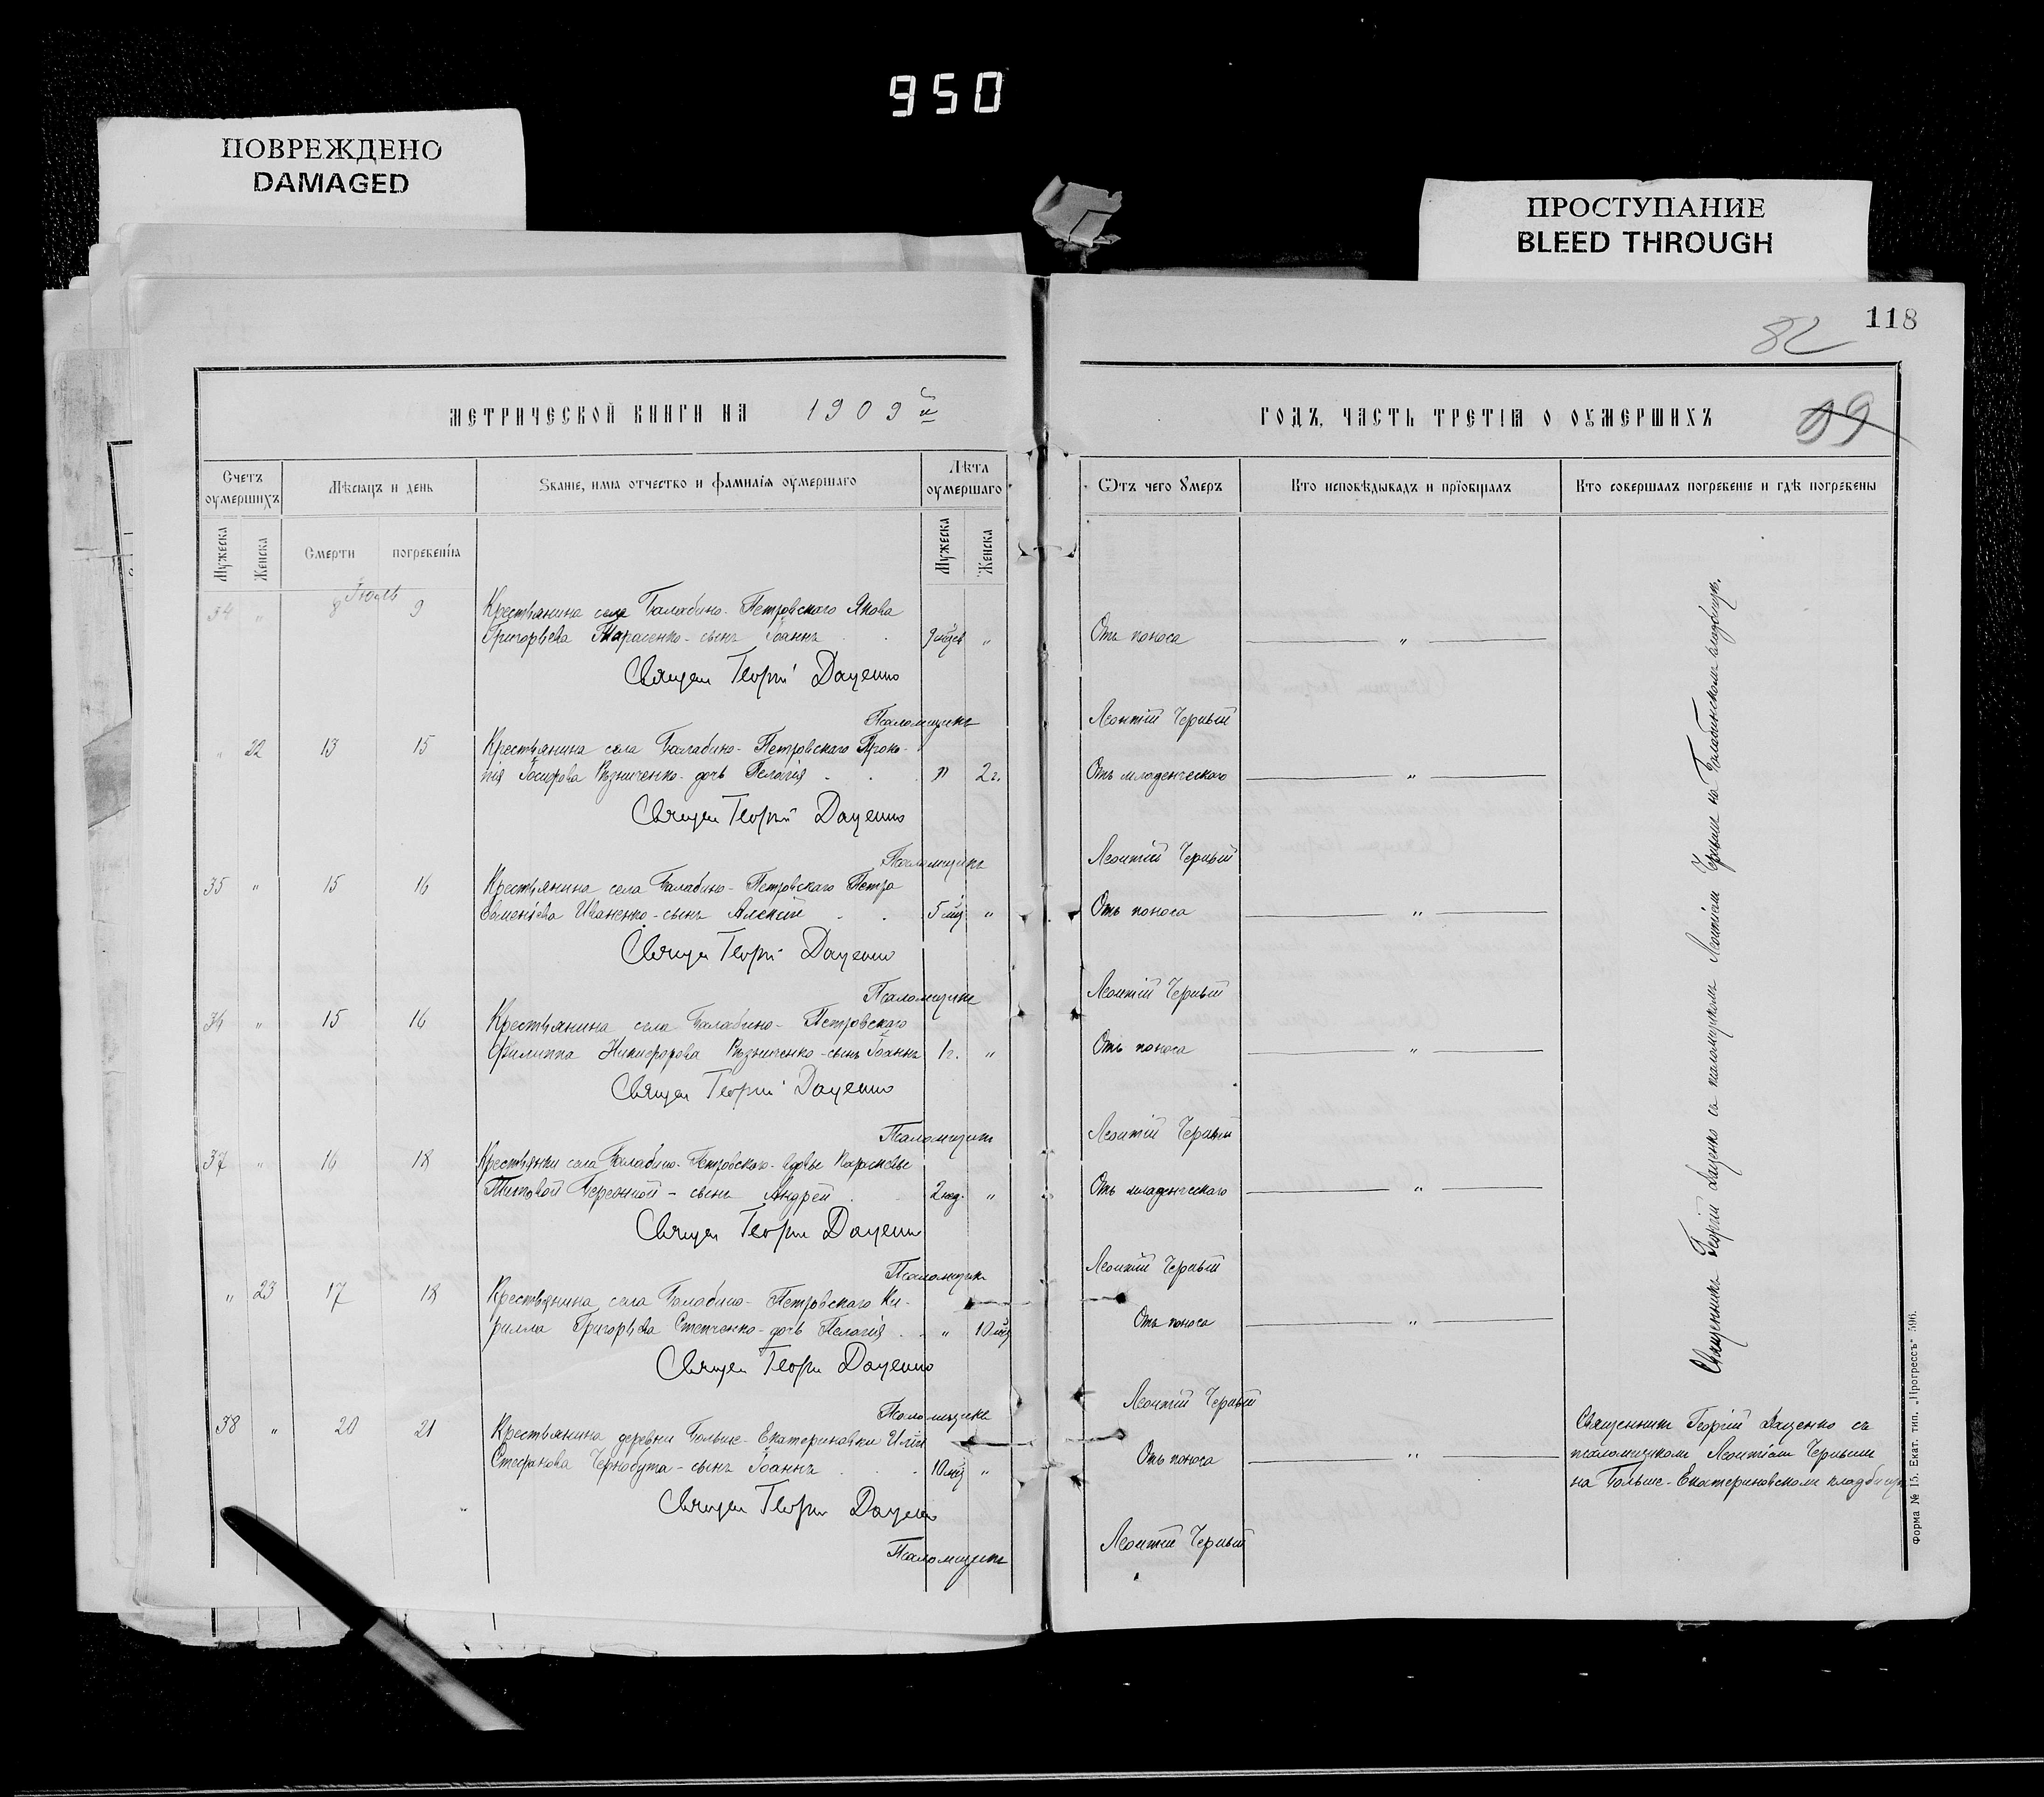 950
ПОВРЕЖДЕНО
DAMAGED
ПРОСТУПАНИЕ
BLEED THROUGH
118
82
99
МЕТРИЧЕСКОЙ КНИГИ НА 1909 й
ГОДЪ, ЧАСТЬ ТРЕТІЯ О ОУМЕРШИХЪ
Счетъ оумершихъ
Мѣсяцъ и день
Званіе, имя отчество и фамилія оумершаго
Лѣта оумершаго
Ѿтъ чего Умеръ
Кто исповѣдывалъ и пріобщалъ
Кто совершалъ погребеніе и гдѣ погребены
Мужеска
Женска
Смерти
погребенія
Мужеска
Женска
Іюль
34 " 8 9 Крестьянина села Балабино-Петровскаго Якова
Григорьева Тарасенко - сынъ Іоаннъ . . 9 мѣс " Отъ поноса "
Священ Георгій Даценко
Псаломщикъ Леонтій Черный
" 22 13 15 Крестьянина села Балабино-Петровскаго Проко-
пія Іосифова Рѣзниченко - дочь Пелагія . . " 2 г. Отъ младенческаго "
Священ Георгій Даценко
Псаломщикъ Леонтій Черный
35 " 15 16 Крестьянина села Балабино-Петровскаго Петра
Иваненко - сынъ Алексій . . 5 мѣс " Отъ поноса "
Священ Георгій Даценко
Псаломщикъ Леонтій Черный
36 " 15 16 Крестьянина села Балабино-Петровскаго
Филиппа Никифорова Рѣзниченко - сынъ Іоаннъ 1 г. " Отъ поноса "
Священ Георгій Даценко
Псаломщикъ Леонтій Черный
37 " 16 18 Крестьянки села Балабино-Петровскаго - вдовы
Титовой - сынъ Андрей . . 2 нед. " Отъ младенческаго "
Священ Георгій Даценко
Псаломщикъ Леонтій Черный
" 23 17 18 Крестьянина села Балабино-Петровскаго Ки-
рилла Григорьева Степченко - дочь Пелагія . . " 10 мѣс Отъ поноса "
Священ Георгій Даценко
Псаломщикъ Леонтій Черный
38 " 20 21 Крестьянина деревни Больше-Екатериновки Иліи
Стефанова Чернобута - сынъ Іоаннъ . . . 10 мѣс " Отъ поноса "
Священ Георгій Даценко
Псаломщикъ Леонтій Черный
Священникъ Георгій Даценко съ псаломщикомъ Леонтіемъ Чернымъ на Балабинскомъ кладбищѣ.
Священникъ Георгій Даценко съ
псаломщикомъ Леонтіемъ Чернымъ
на Больше-Екатериновскомъ кладбищѣ
Форма № 15. Екат. тип. „Прогрессъ“ 596.